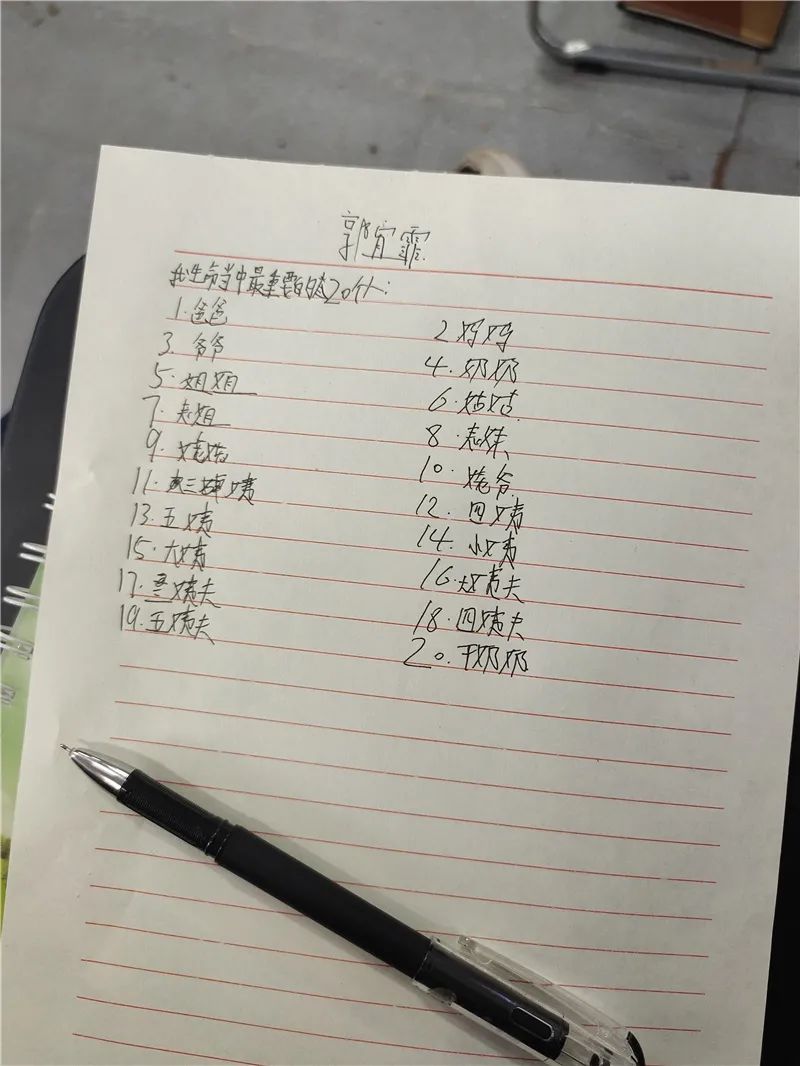 郭宜霏
我生命当中最重要的20个人:
1.爸爸 2妈妈
3.爷爷 4.奶奶
5.姐姐 6.姑姑
7.表姐 8.表妹
9.姥姥 10.姥爷
11.三姨 12.四姨
13.五姨 14.小姨
15.大姨 16.大姨夫
17.三姨夫 18.四姨夫
19.五姨夫 20.干奶奶